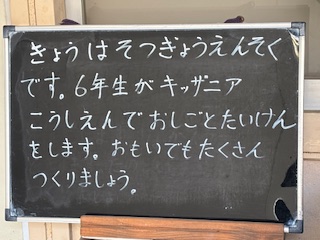 きょうはそつぎょうえんそく
です。6年生がキッザニア
こうしえんでおしごとたいけん
をします。おもいでもたくさん
つくりましょう。